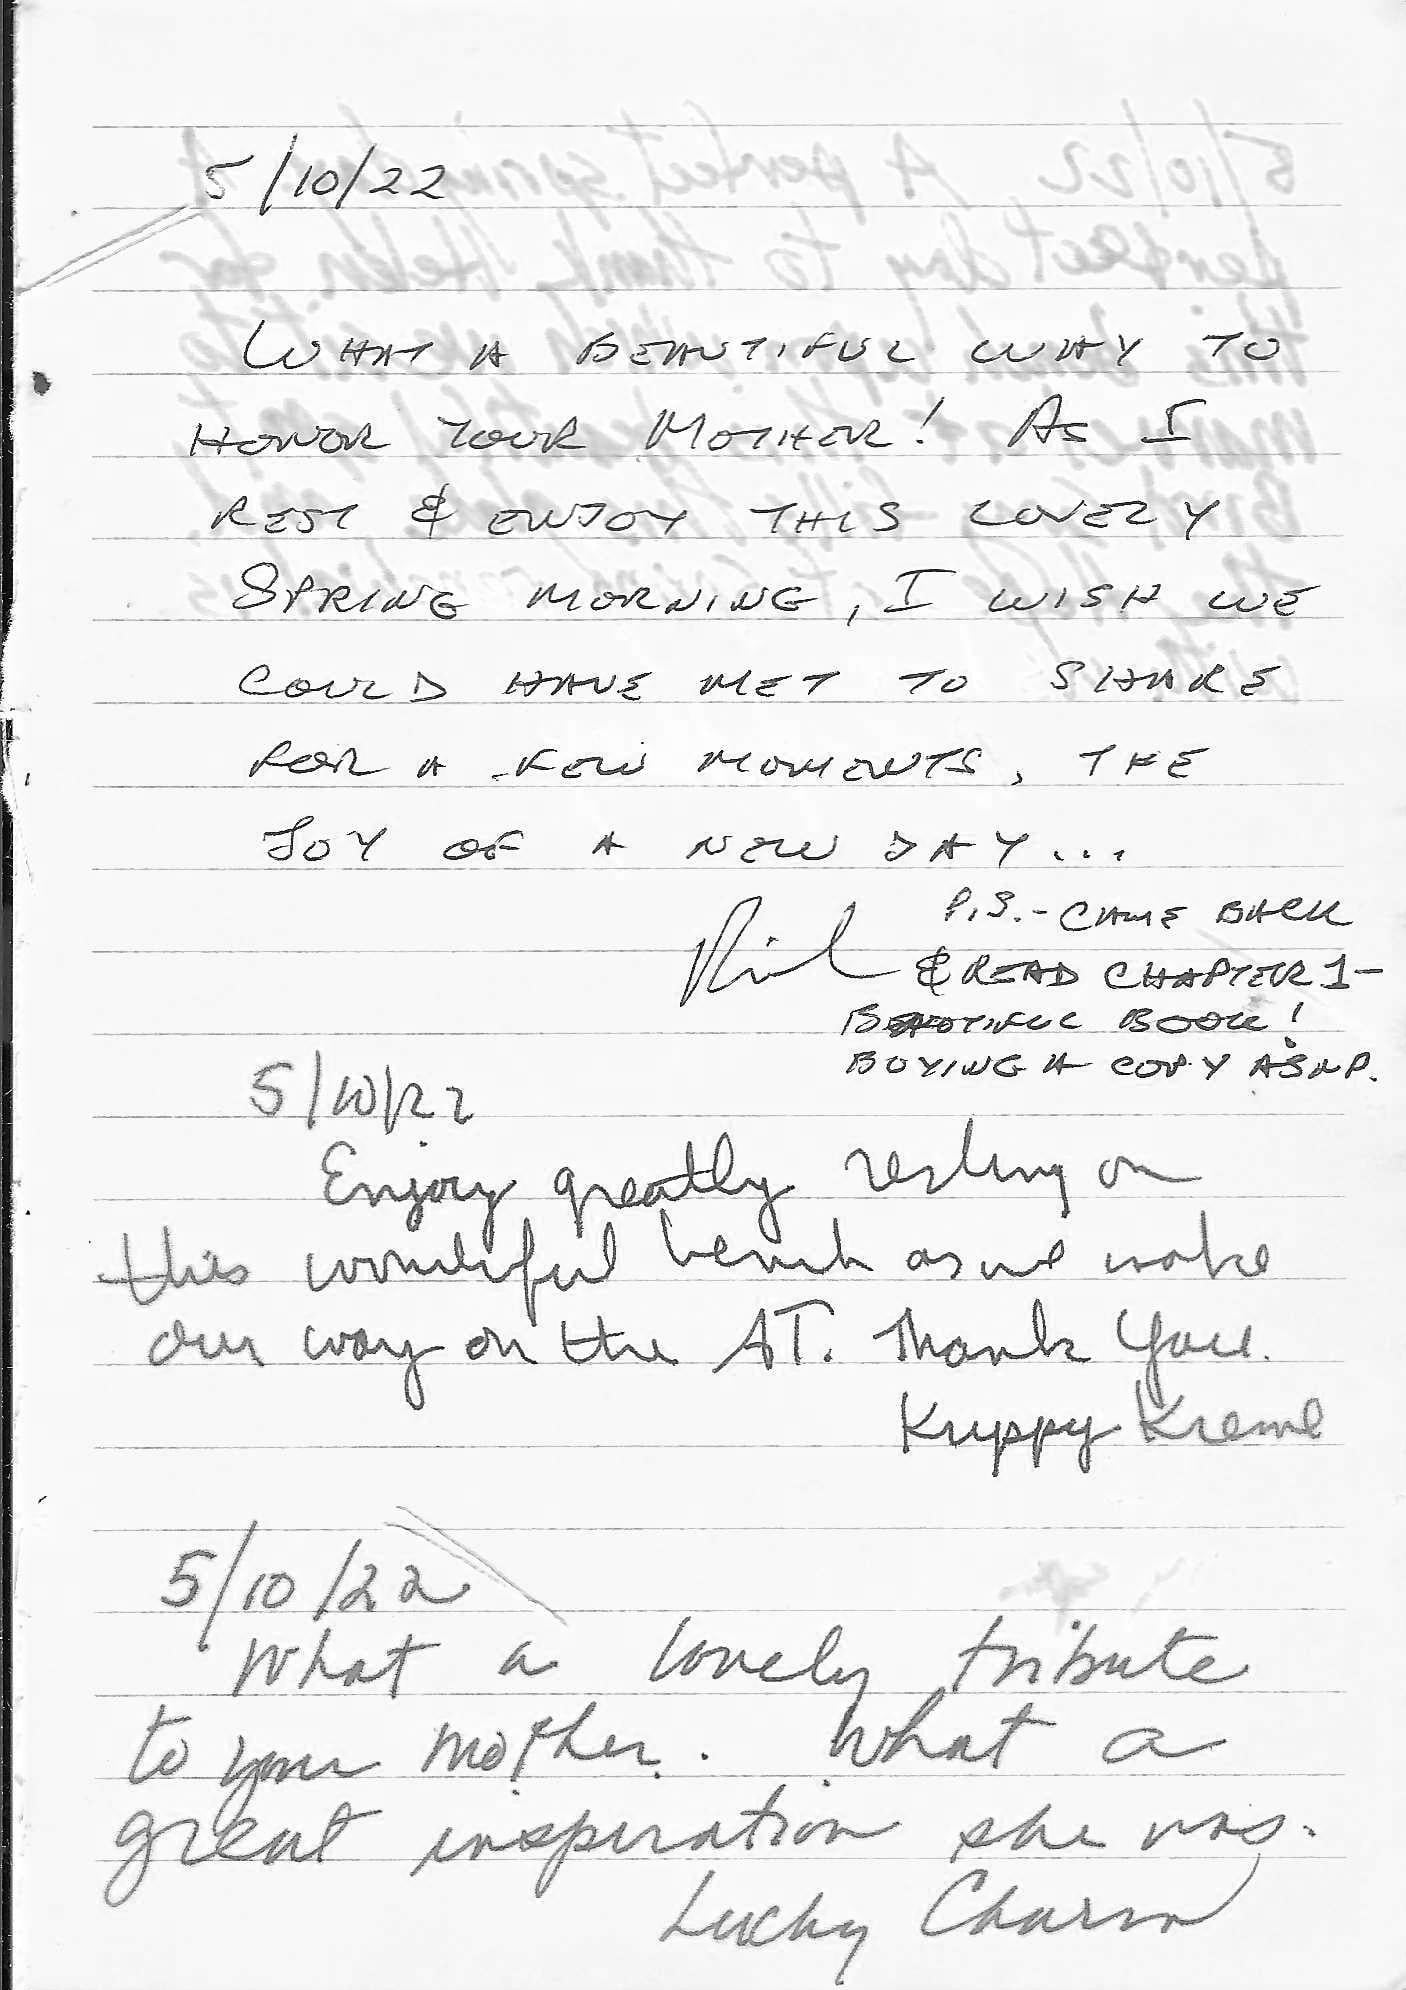 5/10/22
WHAT A BEAUTIFUL WAY TO
HONOR YOUR MOTHER! AS I
REST & ENJOY THIS LOVELY
SPRING MORNING, I WISH WE
COULD HAVE MET TO SHARE
FOR A FEW MOMENTS, THE
JOY OF A NEW DAY...
P.S.- CAME BACK
Rich & READ CHAPTER 1-
BEAUTIFUL BOOK!
BUYING A COPY ASAP.
5/10/22
Enjoy greatly resting on
this wonderful bench as we make
our way on the AT. Thank You.
Kuppy Kreme
5/10/22
What a lovely tribute
to your mother. What a
great inspiration she was.
Lucky Charm